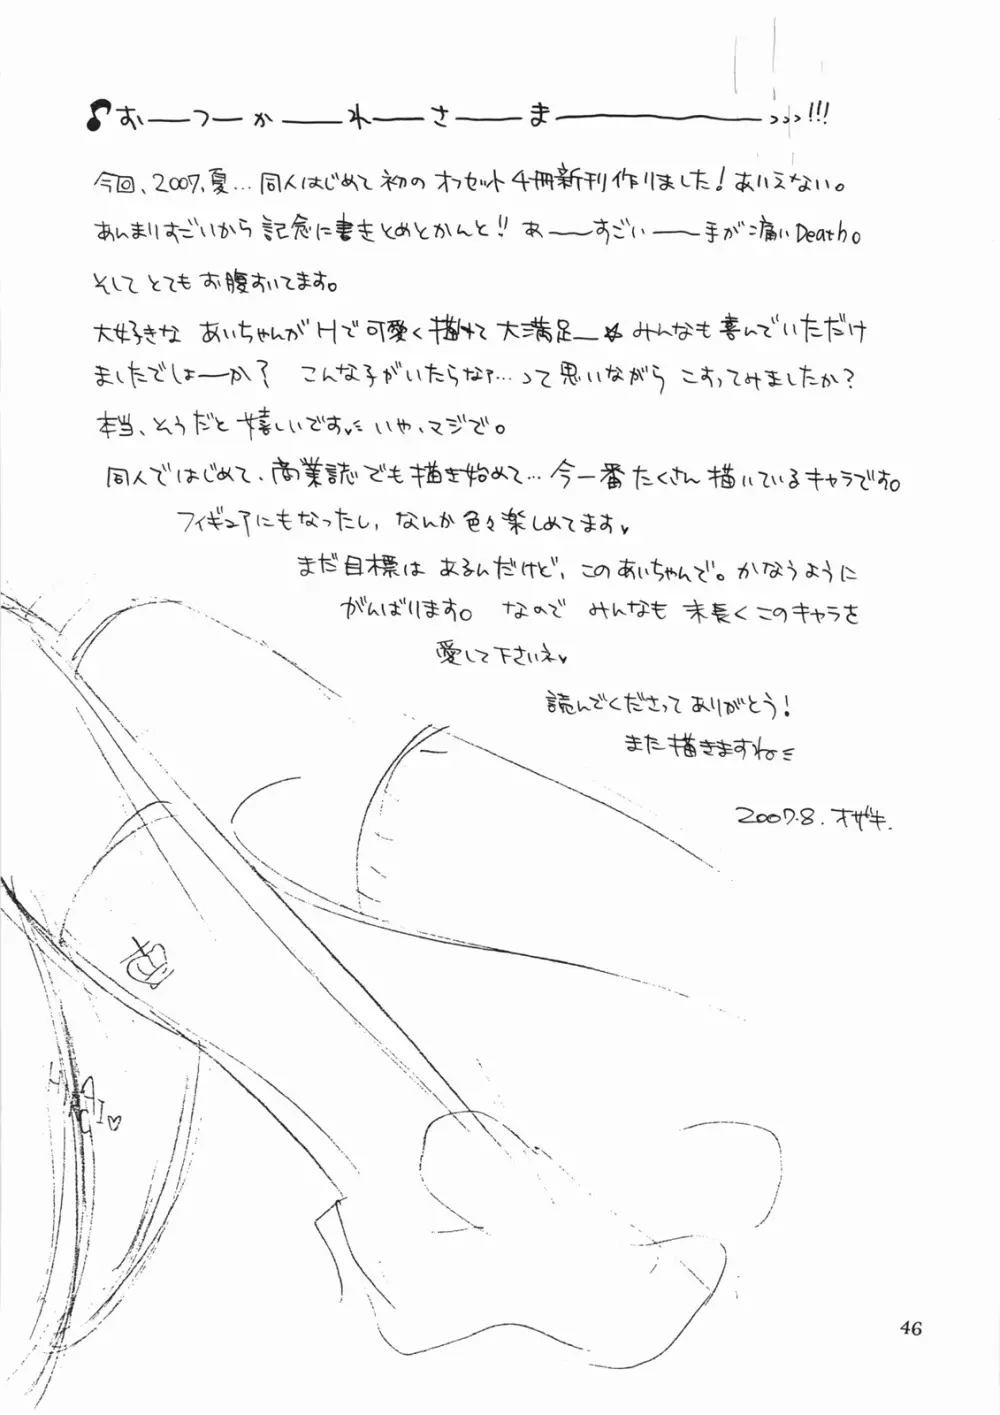 ♪おーつーかーれーさーまーーーーー>>>!!!
今回、2007、夏…同人はじめて初のオフセット4冊新刊作りました!ありえない。
あんまりすごいから記念に書きとめとかんと!!あーーすごいーー手が痛いDeath。
そしてとてもお腹すいてます。
大好きなあいちゃんがHで可愛く描けて大満足ー☆みんなも喜んでいただけ
ましたでしょーか?こんな子がいたらなァ…って思いながらこすってみましたか?
本当、そうだと嬉しいです♥いや、マジで。
同人ではじめて、商業誌でも描き始めて…今一番たくさん描いているキャラです。
フィギュアにもなったし、なんか色々楽しめてます♥
まだ目標はあるんだけど、このあいちゃんで。かなうように
がんばります。なのでみんなも末長くこのキャラを
愛して下さいネ♥
読んでくださってありがとう!
また描きますね
2007.8.オザキ.
46